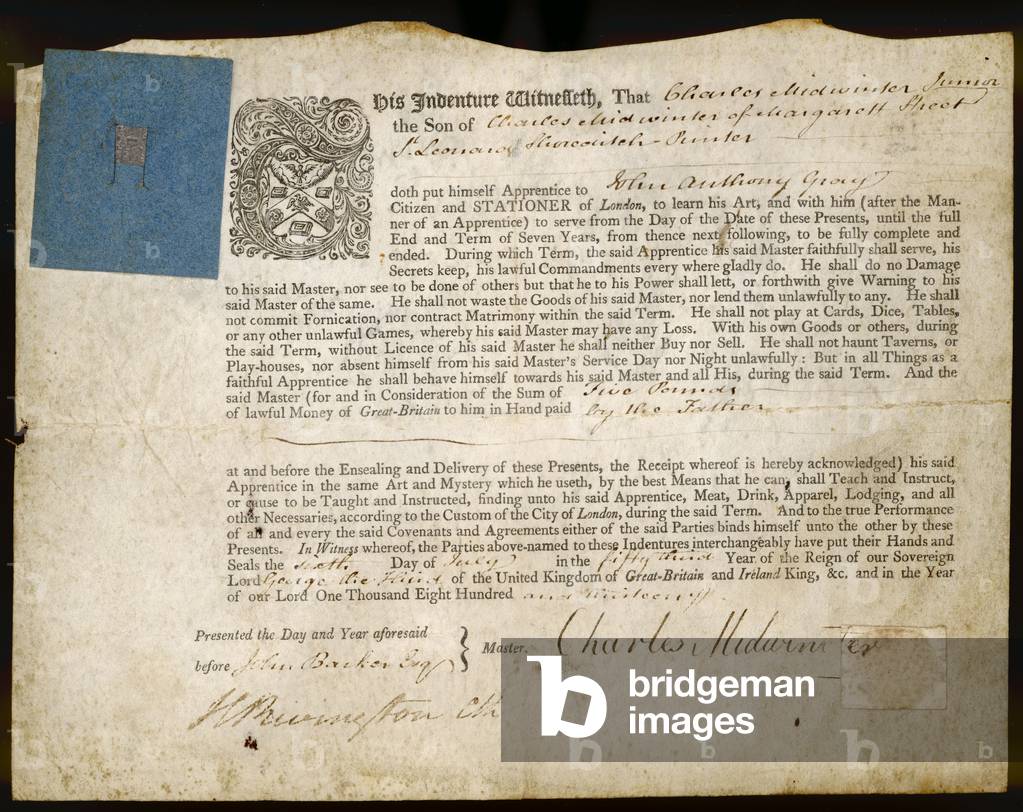 This Indenture Witnesseth, That Charles Midwinter Junior
the Son of Charles Midwinter of Margarett Street
St. Leonard Shoreditch Printer
doth put himself Apprentice to John Anthony Gray
Citizen and STATIONER of London, to learn his Art, and with him (after the Man-
ner of an Apprentice) to serve from the Day of the Date of these Presents, until the full
End and Term of Seven Years, from thence next following, to be fully complete and
ended. During which Term, the said Apprentice his said Master faithfully shall serve, his
Secrets keep, his lawful Commandments every where gladly do. He shall do no Damage
to his said Master, nor see to be done of others but that he to his Power shall lett, or forthwith give Warning to his
said Master of the same. He shall not waste the Goods of his said Master, nor lend them unlawfully to any. He shall
not commit Fornication, nor contract Matrimony within the said Term. He shall not play at Cards, Dice, Tables,
or any other unlawful Games, whereby his said Master may have any Loss. With his own Goods or others, during
the said Term, without Licence of his said Master he shall neither Buy nor Sell. He shall not haunt Taverns, or
Play-houses, nor absent himself from his said Master's Service Day nor Night unlawfully: But in all Things as a
faithful Apprentice he shall behave himself towards his said Master and all His, during the said Term. And the
said Master (for and in Consideration of the Sum of Five Pounds
of lawful Money of Great-Britain to him in Hand paid by the Father
at and before the Ensealing and Delivery of these Presents, the Receipt whereof is hereby acknowledged) his said
Apprentice in the same Art and Mystery which he useth, by the best Means that he can, shall Teach and Instruct,
or cause to be Taught and Instructed, finding unto his said Apprentice, Meat, Drink, Apparel, Lodging, and all
other Necessaries, according to the Custom of the City of London, during the said Term. And to the true Performance
of all and every the said Covenants and Agreements either of the said Parties binds himself unto the other by these
Presents. In Witness whereof, the Parties above-named to these Indentures interchangeably have put their Hands and
Seals the sixth Day of July in the fifty third Year of the Reign of our Sovereign
Lord George the Third of the United Kingdom of Great-Britain and Ireland King, &c. and in the Year
of our Lord One Thousand Eight Hundred and thirteen
Presented the Day and Year aforesaid
before John Barker Esq
} Master.
Charles Midwinter
Rivington
bridgeman
images